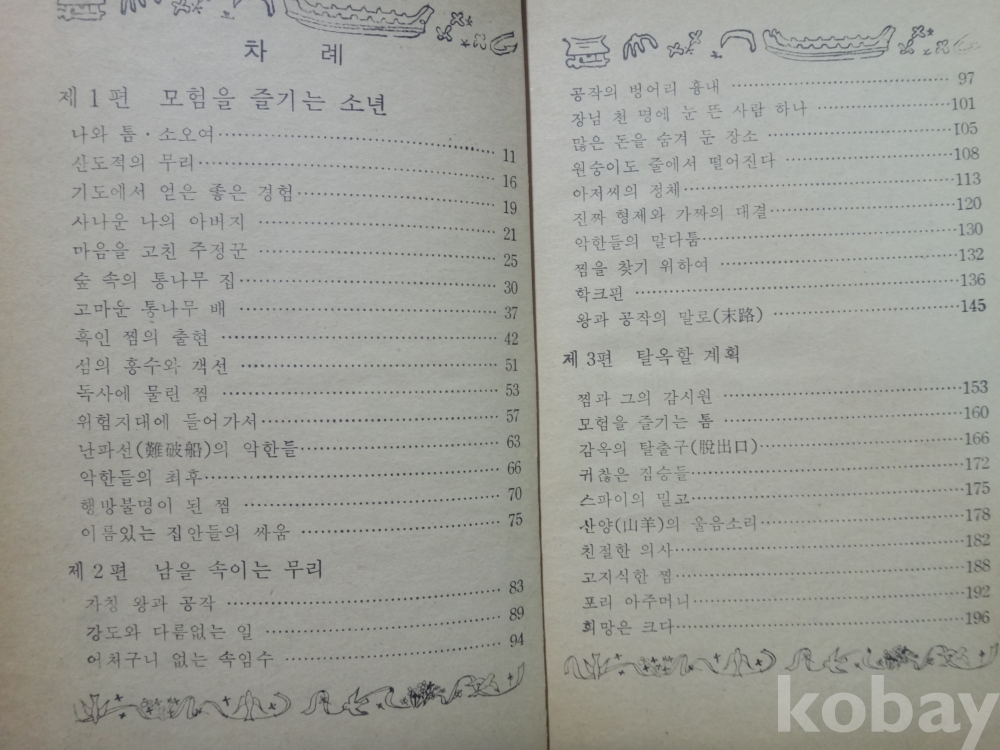 차 례
제 1 편 모험을 즐기는 소년
나와 톰·소오여 11
산도적의 무리 16
기도에서 얻은 좋은 경험 19
사나운 나의 아버지 21
마음을 고친 주정꾼 25
숲 속의 통나무 집 30
고마운 통나무 배 37
흑인 찜의 출현 42
섬의 홍수와 객선 51
독사에 물린 찜 53
위험지대에 들어가서 57
난파선(難破船)의 악한들 63
악한들의 최후 66
행방불명이 된 찜 70
이름있는 집안들의 싸움 75
제 2 편 남을 속이는 무리
가칭 왕과 공작 83
강도와 다름없는 일 89
어처구니 없는 속임수 94
공작의 벙어리 흉내 97
장님 천 명에 눈 뜬 사람 하나 101
많은 돈을 숨겨 둔 장소 105
원숭이도 줄에서 떨어진다 108
아저씨의 정체 113
진짜 형제와 가짜의 대결 120
악한들의 말다툼 130
찜을 찾기 위하여 132
학크핀 136
왕과 공작의 말로(末路) 145
제 3편 탈옥할 계획
찜과 그의 감시원 153
모험을 즐기는 톰 160
감옥의 탈출구(脫出口) 166
귀찮은 짐승들 172
스파이의 밀고 175
산양(山羊)의 울음소리 178
친절한 의사 182
고지식한 찜 188
포리 아주머니 192
희망은 크다 196
kobay